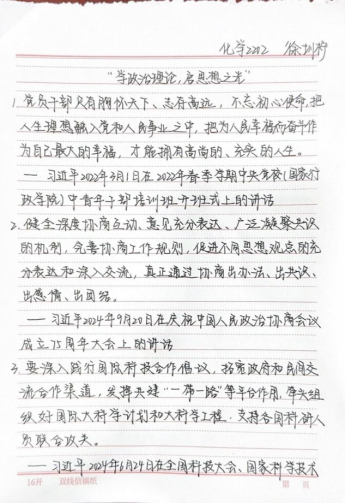 化学2202 徐
“学政治理论,启思想之光”
1.党员干部只有胸怀天下、志存高远,不忘初心使命,把
人生理想融入党和人民事业之中,把为人民幸福而奋斗作
为自己最大的幸福,才能拥有高尚的、充实的人生。
——习近平2022年3月1日在2022年春季学期中央党校(国家行
政学院)中青年干部培训班开班式上的讲话
2.健全深度协商互动、意见充分表达、广泛凝聚共识
的机制,完善协商工作规则,促进不同思想观点的充
分表达和深入交流,真正通过协商出办法、出共识、
出感情、出团结。
——习近平2024年9月20日在庆祝中国人民政治协商会议
成立75周年大会上的讲话
3.要深入践行国际科技合作倡议,拓宽政府和民间交
流合作渠道,发挥共建“一带一路”等平台作用,牵头组
织好国际大科学计划和大科学工程,支持各国科研人
员联合攻关。
——习近平2024年6月24日在全国科技大会、国家科学技术
16开 双线信稿纸 第 页